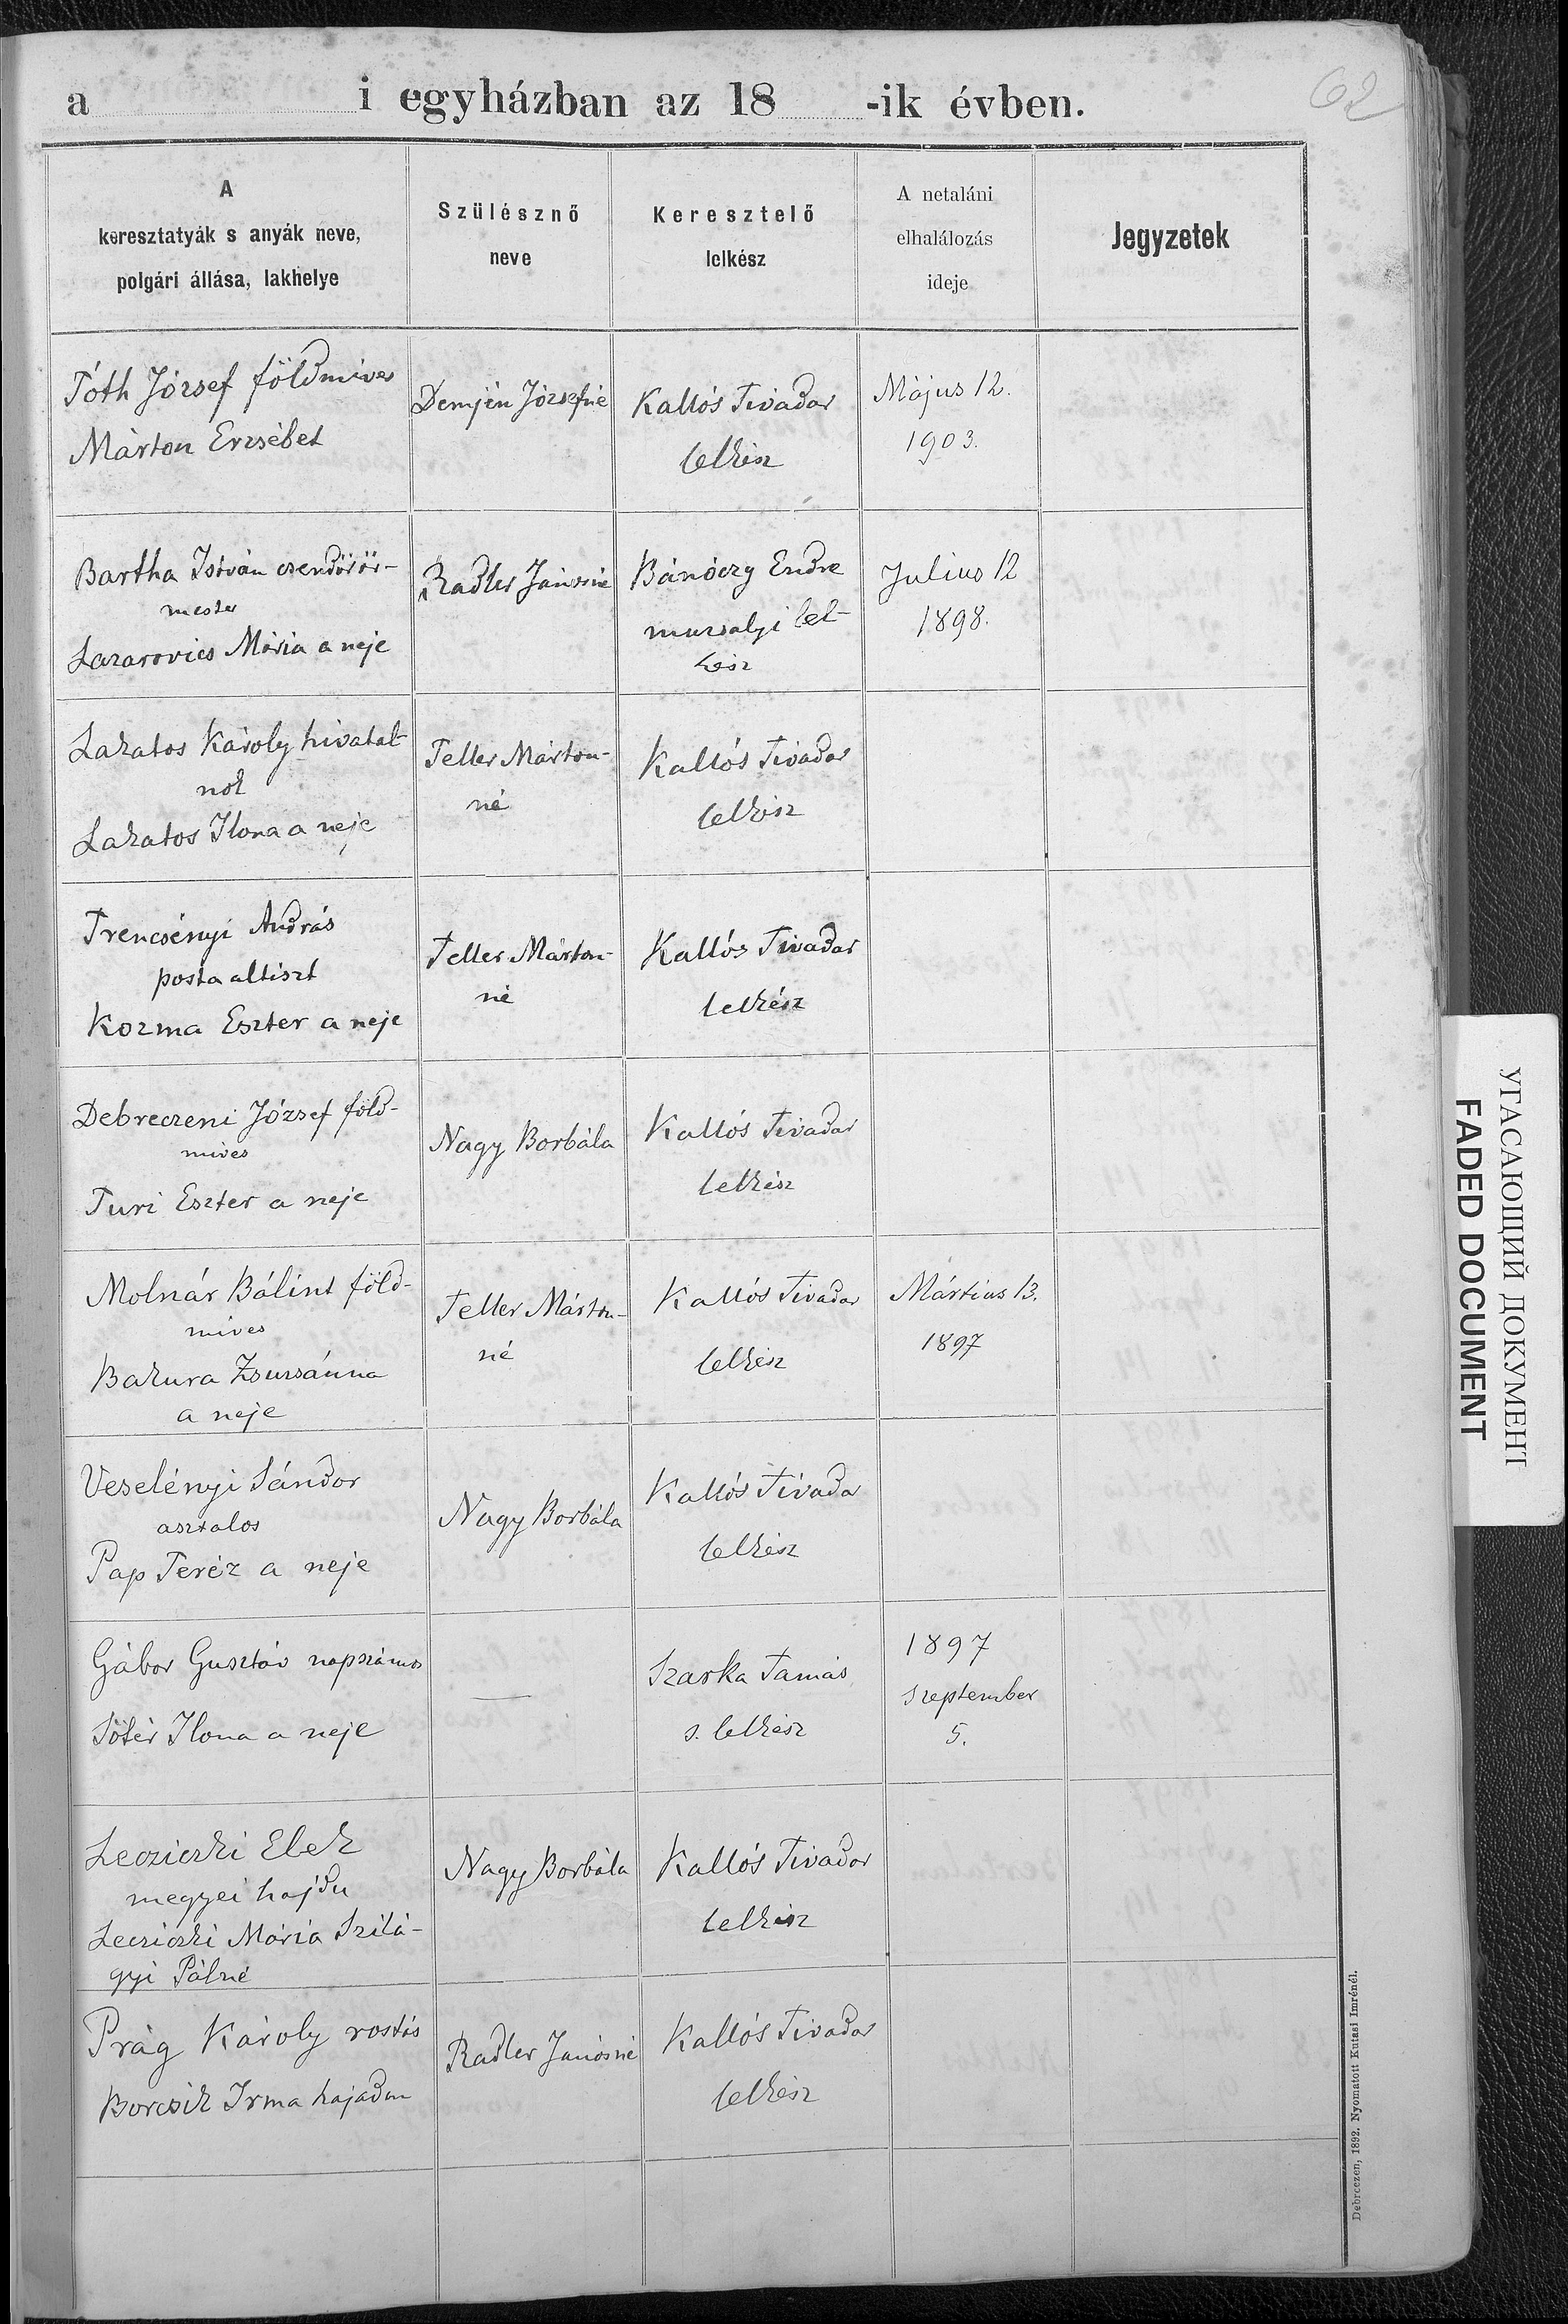 a i egyházban az 18 -ik évben.
62
A
keresztatyák s anyák neve,
polgári állása, lakhelye
Szülésznő
neve
Keresztelő
lelkész
A netaláni
elhalálozás
ideje
Jegyzetek
Tóth József földmives
Márton Erzsébet
Demjén Józsefné
Kallós Tivadar
lelkész
Május 12.
1903.
Bartha István csendőrőr-
mester
Lazarovics Mária a neje
Radler Jánosné
Bánóczy Endre
muzsalyi lel-
kész
Julius 12
1898.
Lakatos Károly hivatal-
nok
Lakatos Ilona a neje
Teller Márton-
né
Kallós Tivadar
lelkész
Trencsényi András
posta altiszt
Kozma Eszter a neje
Teller Márton-
né
Kallós Tivadar
lelkész
Debreczeni József föld-
mives
Turi Eszter a neje
Nagy Borbála
Kallós Tivadar
lelkész
Molnár Bálint föld-
mives
Bakura Zsuzsánna
a neje
Teller Márton-
né
Kallós Tivadar
lelkész
Mártius 13.
1897
Veselényi Sándor
asztalos
Pap Teréz a neje
Nagy Borbála
Kallós Tivadar
lelkész
Gábor Gusztáv napszámos
Sötér Ilona a neje
—
Szarka Tamás
s. lelkész
1897
Szeptember
5.
Lecziczki Elek
megyei hajdu
Lecziczki Mária Szilá-
gyi Pálné
Nagy Borbála
Kallós Tivadar
lelkész
Prág Károly rostás
Borcsik Irma hajadon
Radler Jánosné
Kallós Tivadar
lelkész
Debreczen, 1892. Nyomatott Kutasi Imrénél.
УГАСАЮЩИЙ ДОКУМЕНТ
FADED DOCUMENT